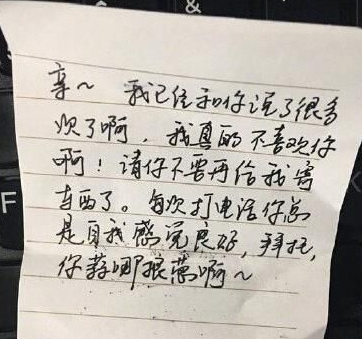 &
F
亲~ 我已经和你说了很多
次了啊，我真的不喜欢你
啊！请你不要再给我寄
东西了。每次打电话你总
是自我感觉良好，拜托，
你蒜哪根葱啊~